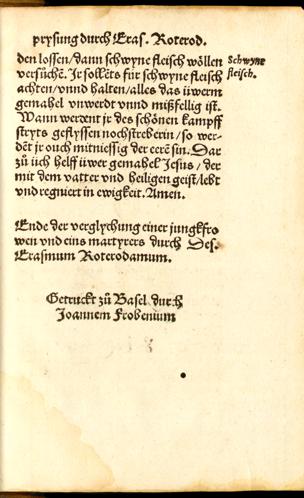 prysung durch Eras. Roterod.
den lossen/dann schwyne fleisch wöllen
Schwyne
versůchē. Jr soltēts für schwyne fleisch
fleisch.
achten/vnnd halten/alles das üwerm
gemahel vnwerdt vnnd mißfellig ist.
Wann werdent jr des schönen kampff
stryts geflyssen nochstreberin/so wer-
dēt jr ouch mitniessig der eerē sin. Dar
zů üch helff üwer gemahel Jesus/der
mit dem vatter vnd heiligen geist/lebt
vnd regniert in ewigkeit. Amen.
Ende der verglychung einer jungkfro
wen vnd eins martyrers durch Des.
Erasmum Roterodamum.
Getruckt zů Basel durch
Joannem Frobenium